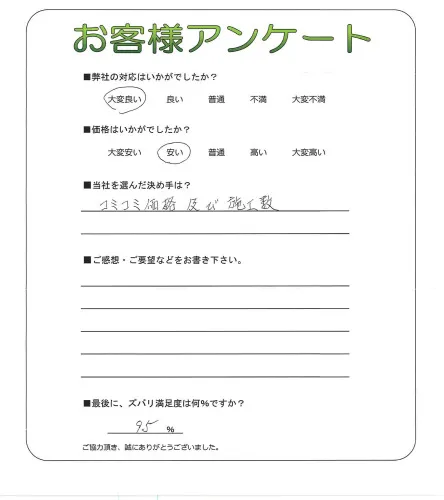 お客様アンケート
■弊社の対応はいかがでしたか？
大変良い 良い 普通 不満 大変不満
■価格はいかがでしたか？
大変安い 安い 普通 高い 大変高い
■当社を選んだ決め手は？
コミコミ価格 及び 施工数
■ご感想・ご要望などをお書き下さい。
■最後に、ズバリ満足度は何％ですか？
95 %
ご協力頂き、誠にありがとうございました。